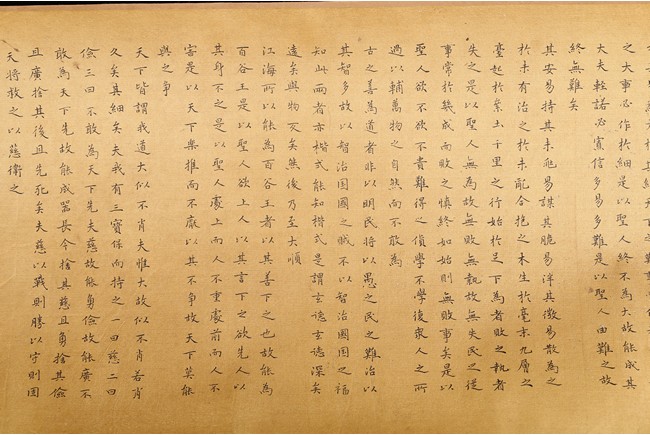 之大事必作於細是以聖人終不為大故能成其
大夫輕諾必寡信多易多難是以聖人由難之故
終無難矣
其安易持其未兆易謀其脆易泮其微易散為之
於未有治之於未亂合抱之木生於毫末九層之
臺起於累土千里之行始於足下為者敗之執者
失之是以聖人無為故無敗無執故無失民之從
事常於幾成而敗之慎終如始則無敗事矣是以
聖人欲不欲不貴難得之貨學不學復衆人之所
過以輔萬物之自然而不敢為
古之善為道者非以明民將以愚之民之難治以
其智多故以智治國國之賊不以智治國國之福
知此兩者亦楷式能知楷式是謂玄德玄德深矣
遠矣與物反矣然後乃至大順
江海所以能為百谷王者以其善下之也故能為
百谷王是以聖人欲上人以其言下之欲先人以
其身下之是以聖人處上而人不重處前而人不
害是以天下樂推而不厭以其不爭故天下莫能
與之爭
天下皆謂我道大似不肖夫惟大故似不肖若肖
久矣其細矣夫我有三寶保而持之一曰慈二曰
儉三曰不敢為天下先夫慈故能勇儉故能廣不
敢為天下先故能成器長今捨其慈且勇捨其儉
且廣捨其後且先死矣夫慈以戰則勝以守則固
天將救之以慈衛之